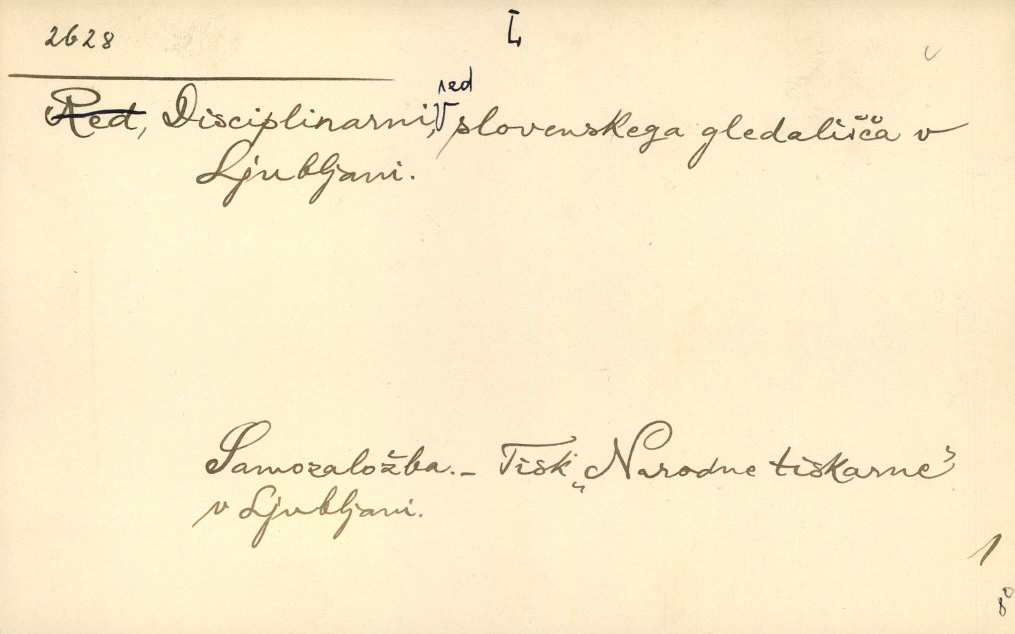 2628
L
Red, Disciplinarni, red slovenskega gledališča v
Ljubljani.
Samozaložba. - Tisk „Narodne tiskarne"
v Ljubljani.
1
8°